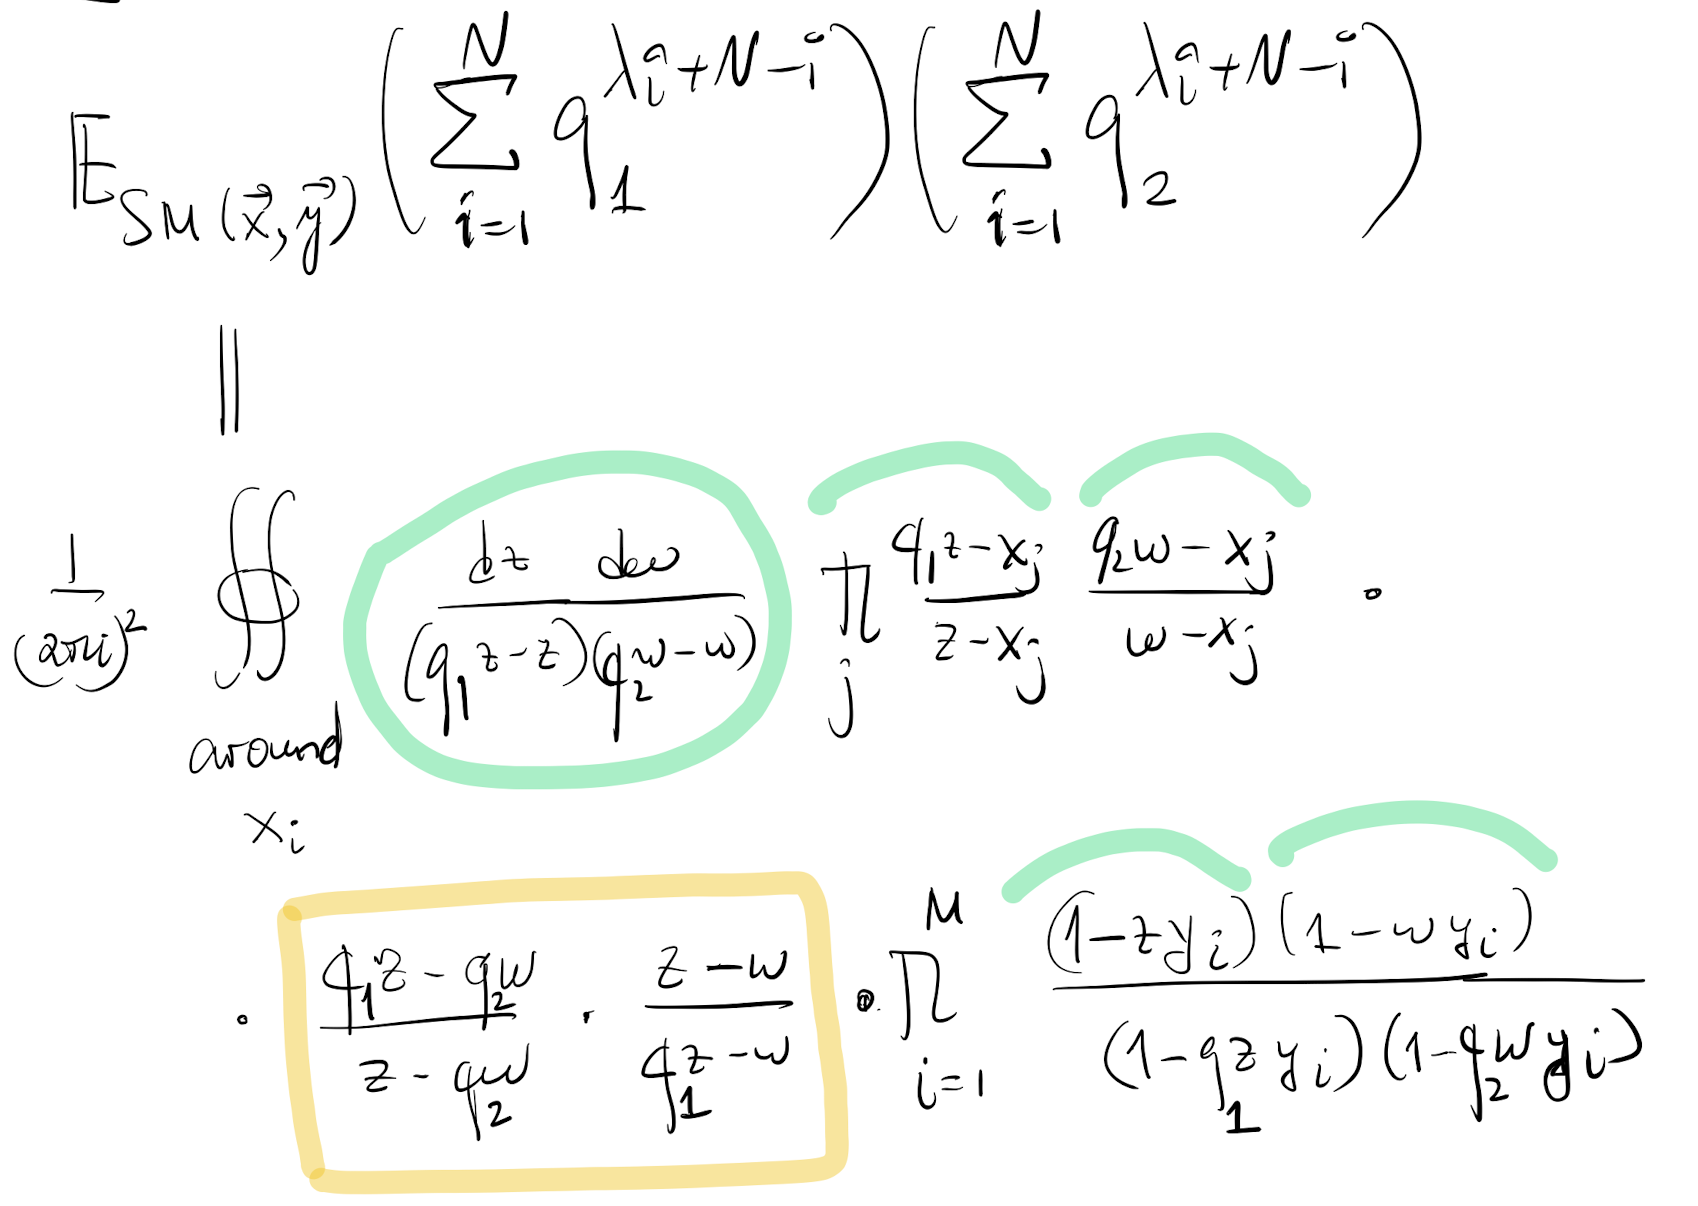 𝔼_{SM(x⃗,y⃗)} (∑_{i=1}^{N} q_1^{λ_i^a+N-i}) (∑_{i=1}^{N} q_2^{λ_i^a+N-i})
||
1/(2πi)^2 ∮∮_{around x_i} dz dw / ((q_1 z-z)(q_2 w-w)) ∏_j (q_1 z-x_j)/(z-x_j) (q_2 w-x_j)/(w-x_j) ·
· (q_1 z-q_2 w)/(z-q_2 w) · (z-w)/(q_1 z-w) · ∏_{i=1}^{M} (1-zy_i)(1-wy_i) / ((1-q_1 zy_i)(1-q_2 wy_i))